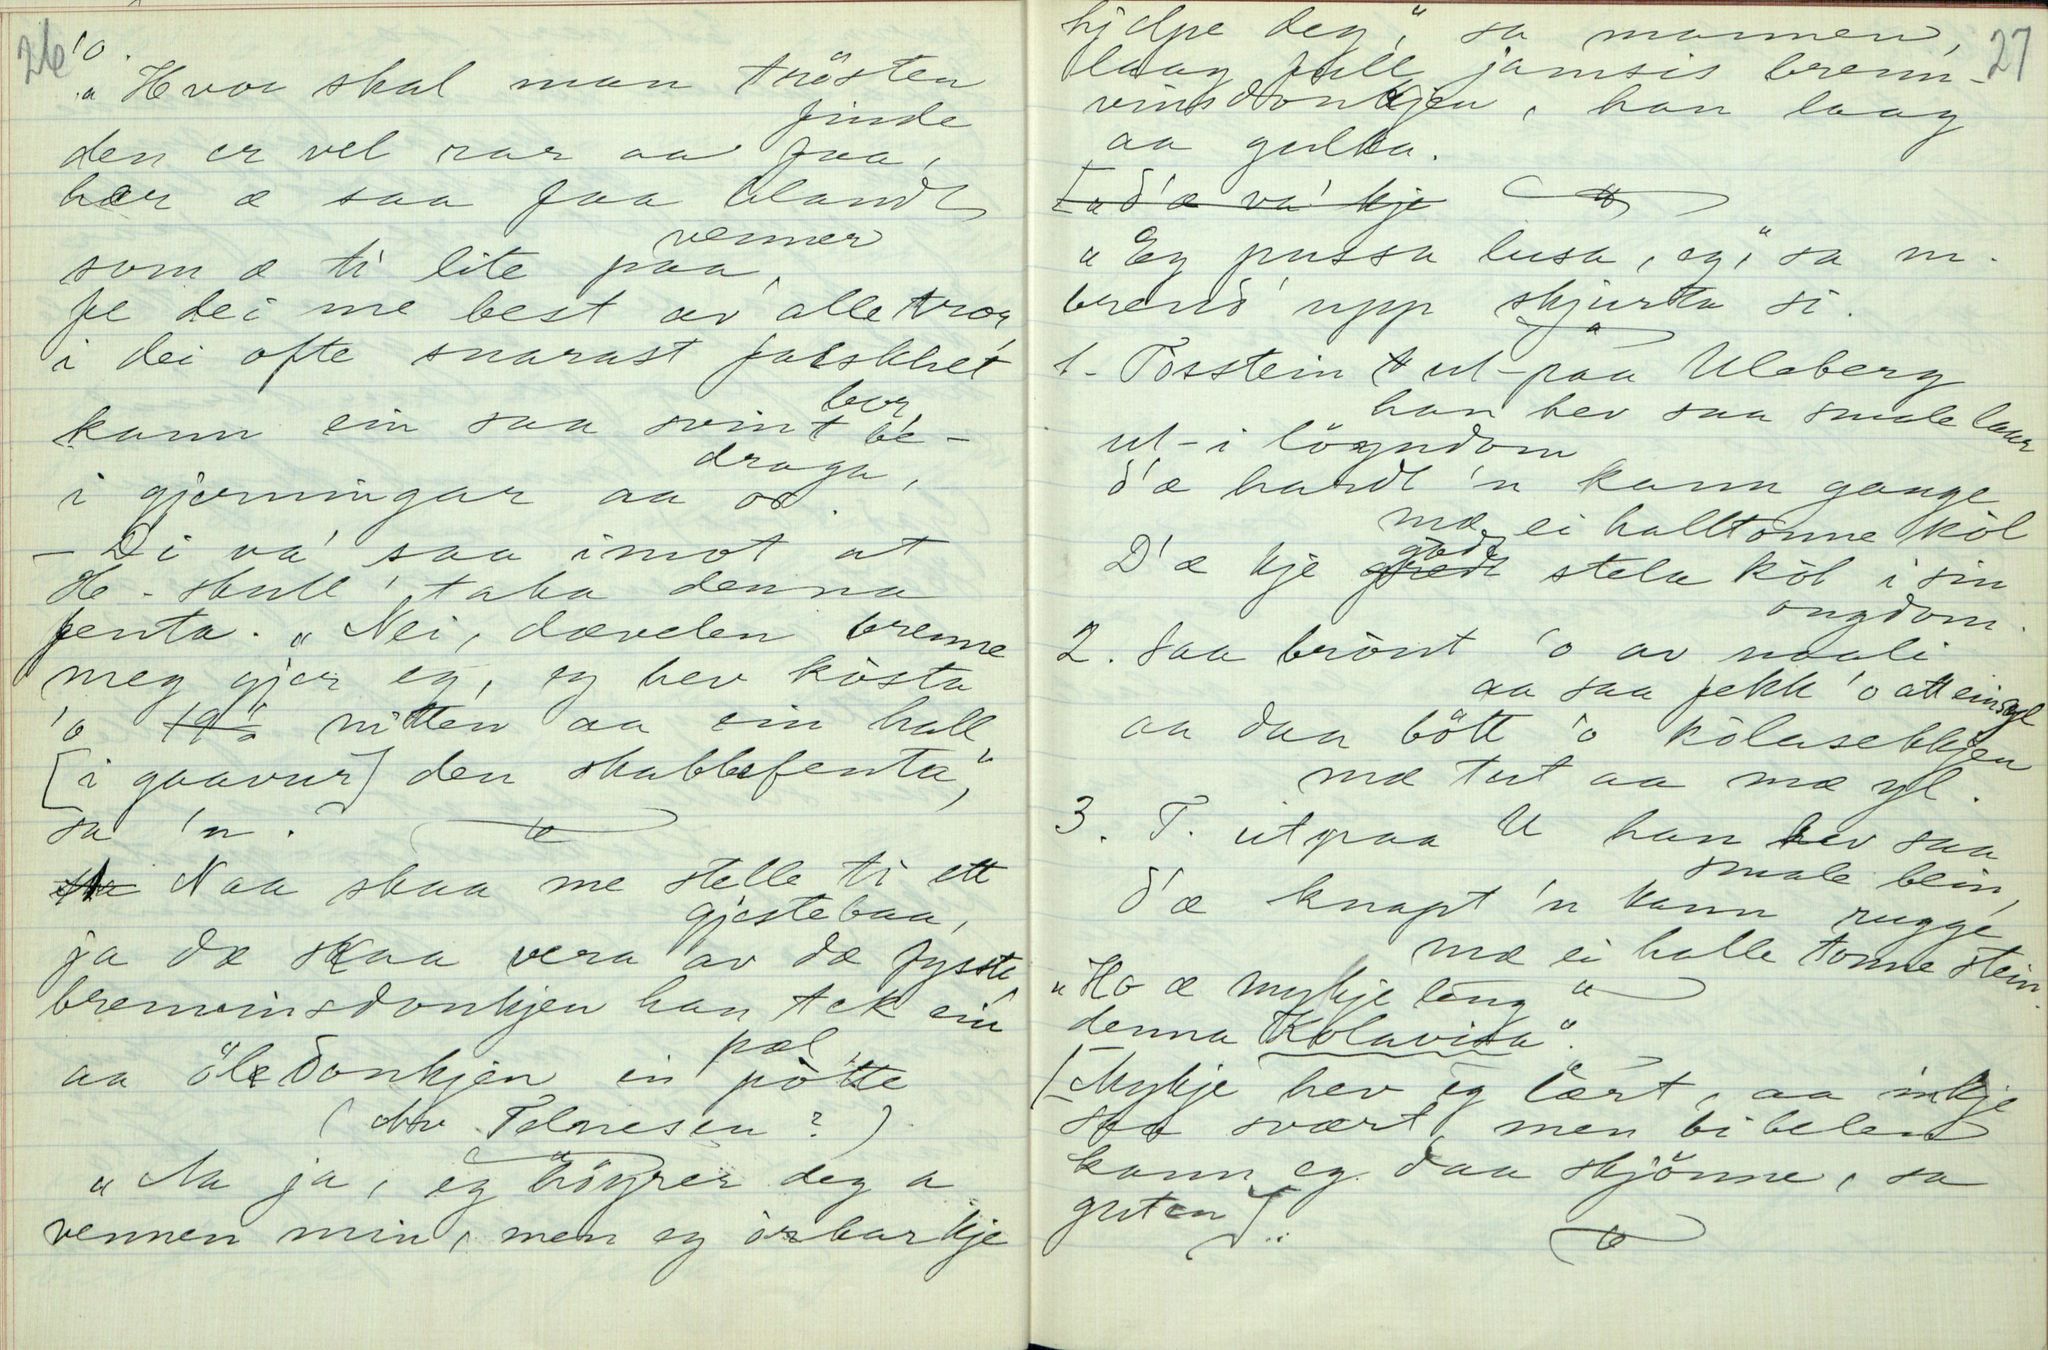 26
'o.
"Hvor skal man trösten
finde
den er vel rar aa faa,
hær æ saa faa blandt
venner
som æ ti lite paa,
fe dei me best av alle tror
i dei ofte snarast falskhet
bor,
kann ein saa svint be-
draga,
i gjerningar aa or.
- Di va' saa imot at
H- skull' taka denna
fenta. "Nei, dævelen brenne
meg gjer eg, eg hev kosta
'o 19 nitten aa ein hall
[i gaavur] den skabbefenta,"
sa 'n.
Naa skaa me stelle ti ett
gjestebaa,
ja dæ skaa vera av dæ fysste
brennvinsdonkjen han tek ein
pæl,
aa öledonkjen ein pötte
(av Telnesen?)
"Aa ja, eg höyrer deg a
vennen min, men eg orkar kje
27
hjelpe deg," sa mannen,
laag full jamsis brenn-
vinsdonkjen, han laag
aa gulka.
["d'æ va' kje
"Eg pussa lusa, eg," sa m.
brend' upp skjurta si.
1- Tosstein ut-paa Uleberg
han hev saa smale laar
ut-i löyndom
d'æ hardt 'n kann gange
mæ ei halltonne kòl
godt
D'æ kje godt stela kòl i sin
ongdom.
2. Saa brönt 'o av naali
aa saa fekk 'o att ein syl
aa daa bött 'o kòlasekkjen
mæ tut aa mæ yl.
3. T. utpaa U han hev saa
smale bein,
d'æ knapt 'n kann rugge
mæ ei halle tonne stein.
"Ho æ mykje long
denna Kolavisa".
[Mykje hev eg lært, aa inkje
saa svært, men bibelen
kann eg daa skjönne, sa
guten].